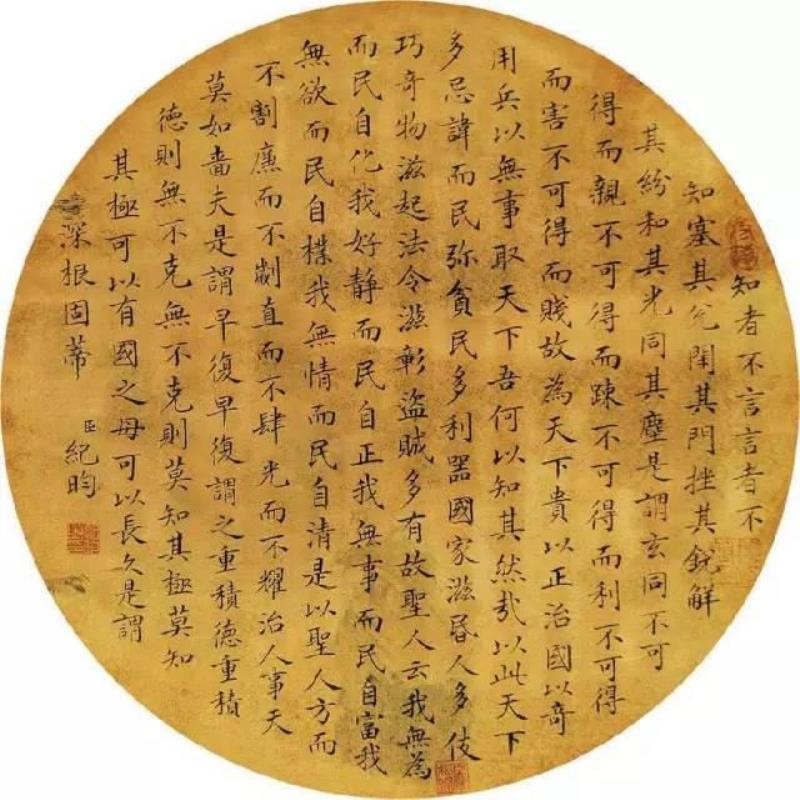 知者不言言者不
知塞其兌閉其門挫其銳解
其紛和其光同其塵是謂玄同不可
得而親不可得而踈不可得而利不可得
而害不可得而賤故為天下貴以正治國以奇
用兵以無事取天下吾何以知其然哉以此天下
多忌諱而民弥貧民多利噐國家滋昬人多伎
巧奇物滋起法令滋彰盜賊多有故聖人云我無為
而民自化我好静而民自正我無事而民自富我
無欲而民自樸我無情而民自清是以聖人方而
不割廉而不劌直而不肆光而不耀治人事天
莫如嗇夫是謂早復早復謂之重積德重積
德則無不克無不克則莫知其極莫知
其極可以有國之母可以長久是謂
深根固蒂
臣紀昀